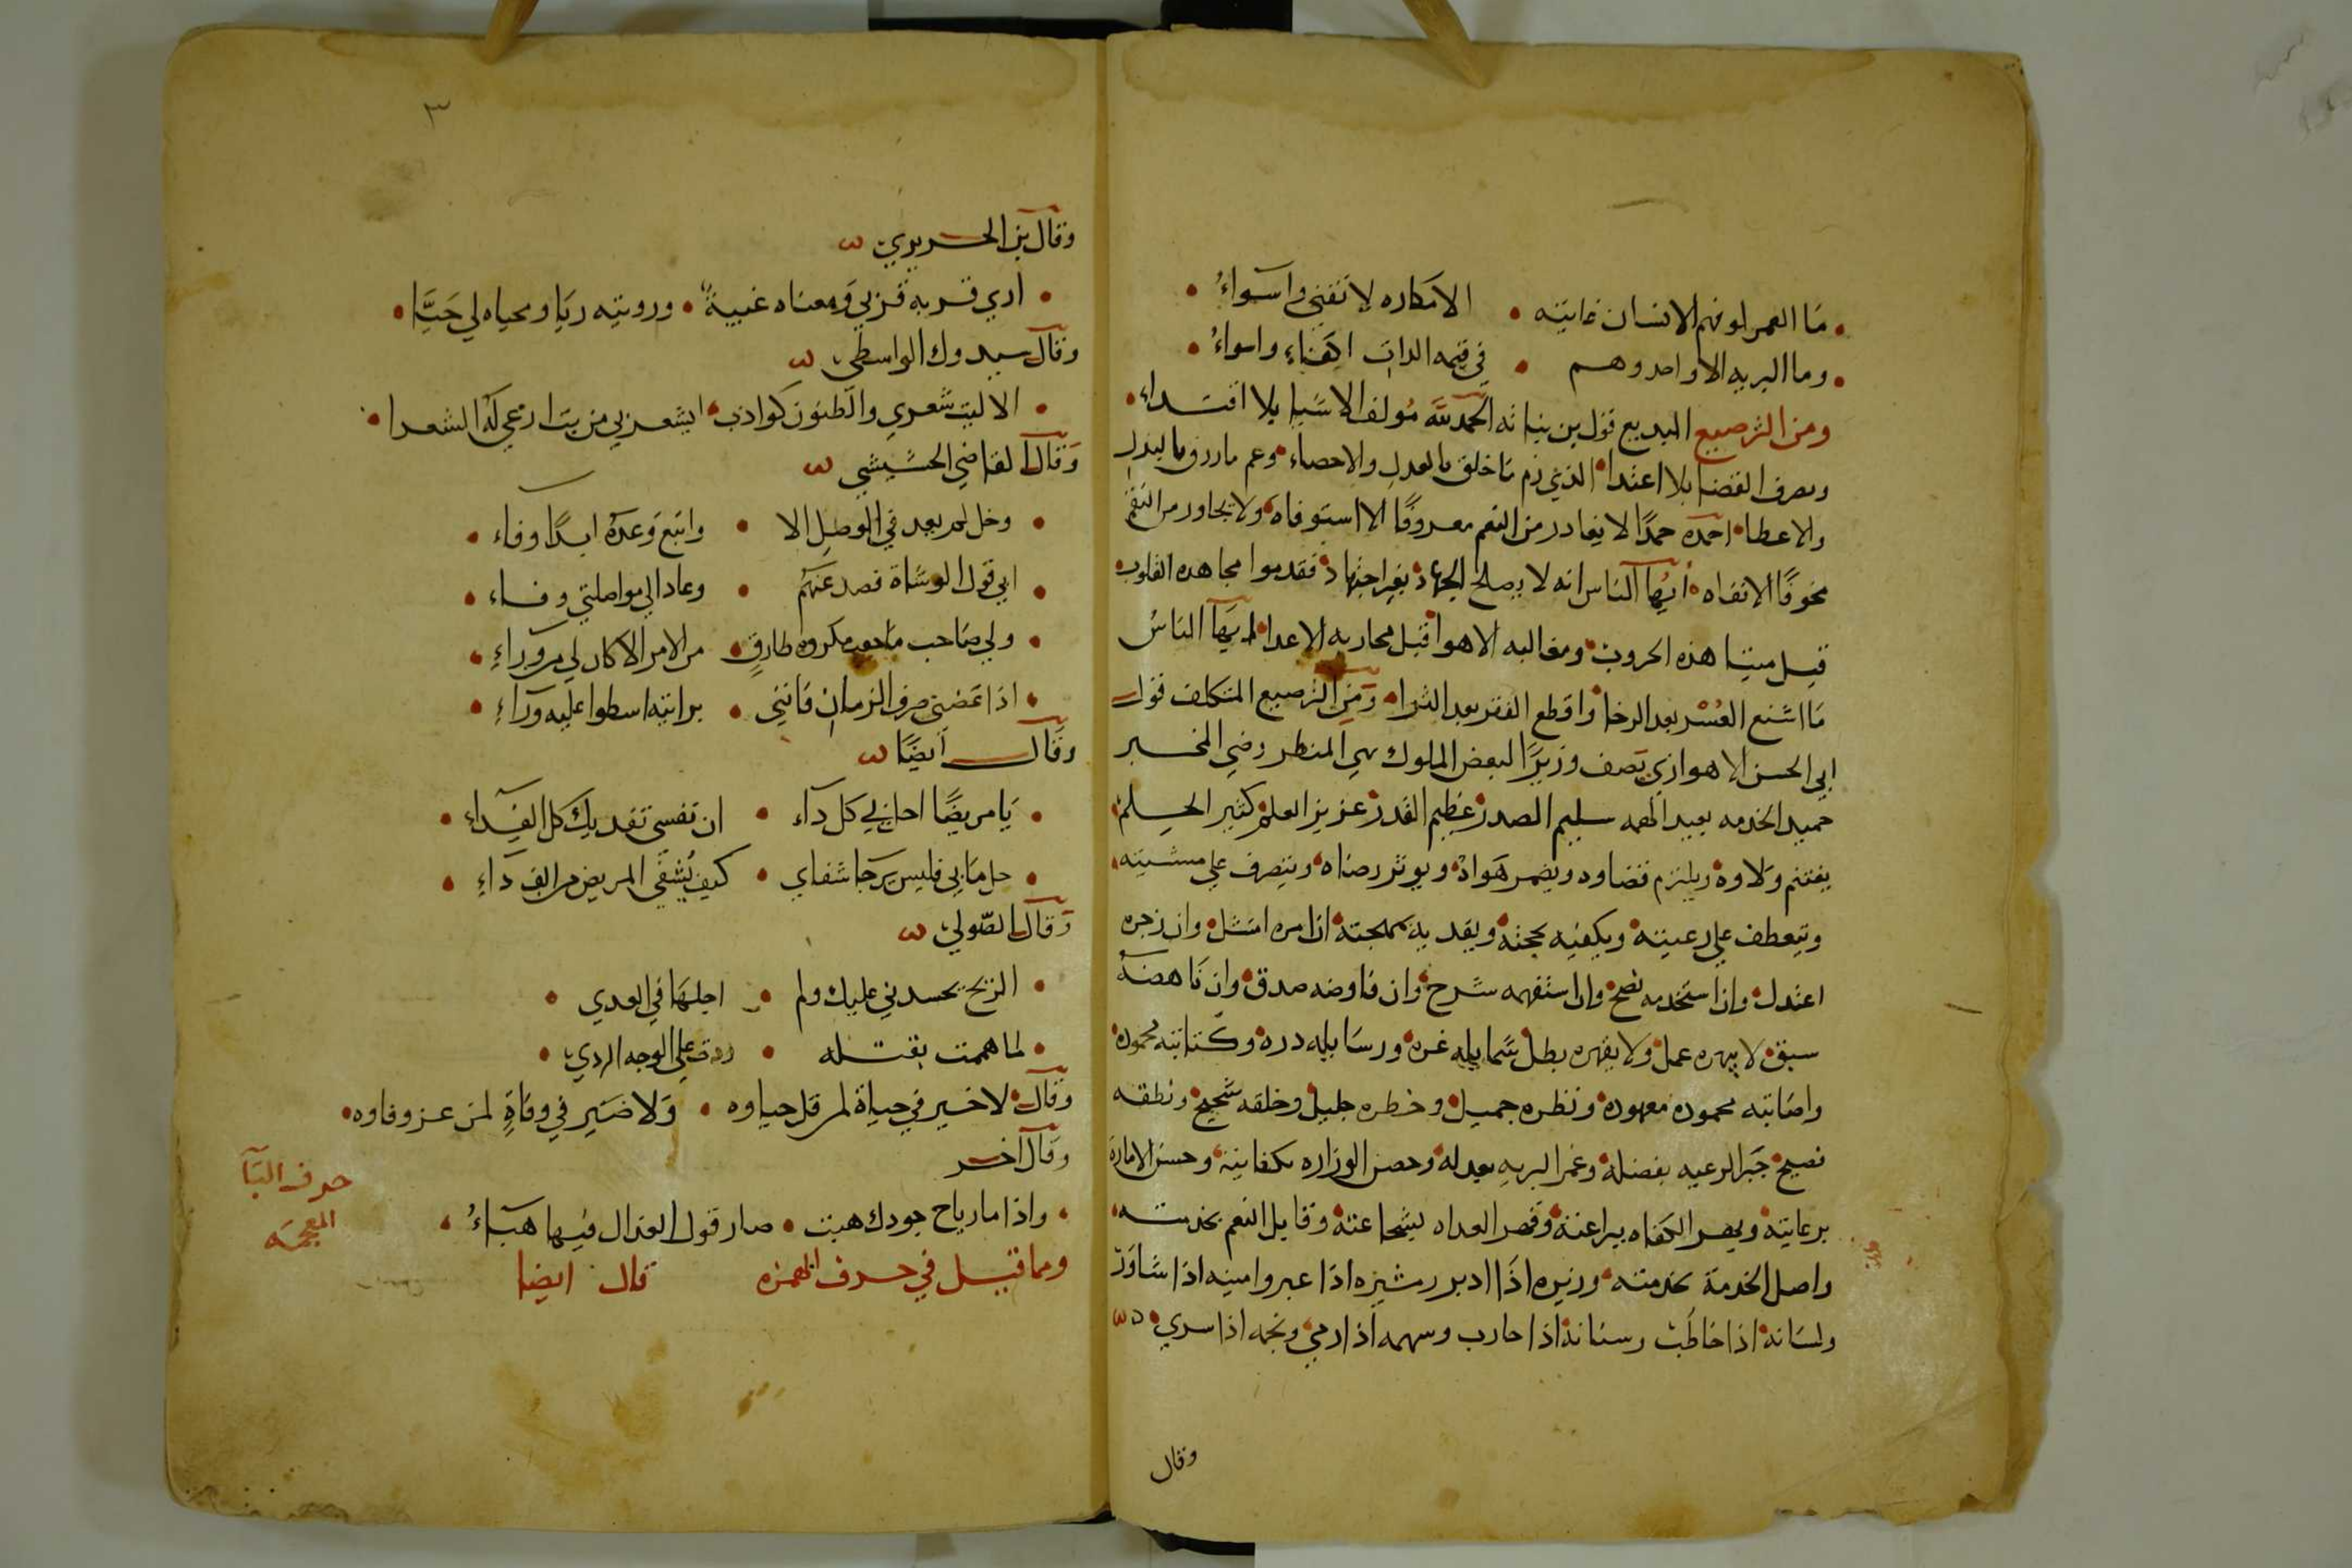 ما العمر لو فهم الانسان غايته • الا مكاره لا تفنى واسواءُ
وما البريه الا واحد وهم • في قيمه الذات اكفاء واسواءُ
ومن الترصيع البديع قول بن نباته الحمد لله مولف الاشيا بلا اقتداء
ومصرف القضا بلا اعتدا الذي زم ما خلق بالعدل والاحصاء وعم ما رزق بالبذل
والاعطا احمده حمدًا لا يغادر من النعم معروفًا الا استوفاه ولا يجاور من النقم
مخوفًا الا نفاه أيها الناس انه لا يصلح الجهاد بغير اجتهاد فقدموا مجاهده القلوب
قبل مشاهده الحروب ومغالبه الاهوا قبل محاربه الاعدا ايها الناسُ
ما اشنع العُسْر بعد الرخا واقطع الفقر بعد الثرا ومن الترصيع المتكلف قول
ابي الحسن الاهوازي يصف وزيرًا لبعض الملوك بهي المنظر رضي المخبر
حميد الخدمه بعيد الهمه سليم الصدر عظيم القدر عزيز العلم كثير الحلم
يغتنم ولاوه ويلتزم قضاوه ويضمر هواه ويوثر رضاه ويتصرف علي مشيته
ويتعطف علي رعيته ويكفيه بحجته ويفديه بمهجته ان امره امتثل وان زجره
اعتدل وان استخدمه نصح وان استفهمه شرح وان فاوضه صدق وان ناهضه
سبق لا يبهره عمل ولا يقهره بطل شمايله غره ورسايله دره وكتابته محموده
واصابته محموده معهوده ونظره جميل وخطره جليل وخلقه سجيح ونطقه
فصيح جبر الرعيه بفضله وغمر البريه بعدله وحصن الوزاره بكفايته وحسن الاماره
برعايته وبهر الكفاه ببراعته وقهر العداه بشجاعته وقابل النعم بخدمته
واصل الخدمة بخدمته وزيره اذا ادبر ومشيره اذا عبر وامينه اذا شاور
ولسانه اذا خاطب وسنانه اذا حارب وسهمه اذا رمي ونجمه اذا سري
وقال
٣
وقال بن الحريري
• اري قربه قربي ومعناه غنيةً • ورويته ريا ومحياه لي حيا •
وقال سيدوك الواسطي
• الا ليت شعري والظنون كواذب • ايشعر بي من بت ارعي له الشعرا •
وقال القاضي الحشيشي
• وخل لم يعد في الوصل الا • واتبع وعده ابدًا وفاء •
• ابي قول الوشاة فصد عنهم • وعاد الي مواصلتي وفاء •
• ولي صاحب ما خفت مكروه طارقٍ • من الامر الا كان لي من وراءِ •
• اذا عضني صرف الزمان فانني • برايته اسطوا عليه وراءِ •
وقال أيضًا
• يا مريضًا احل بي كل داء • ان نفسي تفديك كل الفداءِ •
• حل ما بي فليس يرجا شفاي • كيف يُشفي المريض من الف داءِ •
وقال الصولي
• الريح تحسدني عليك ولم • اخلها في العدي •
• لما هممت بقبلة • ردت علي الوجه الردي •
وقال لا خير في حياة لمن قل حياوه • ولا ضير في وفاةٍ لمن عز وفاوه •
وقال آخر
• واذا ما رياح جودك هبت • صار قول العذال فيها هباءُ •
ومما قيل في حرف الهمزه قال ايضا
حرف البآ
المعجمه